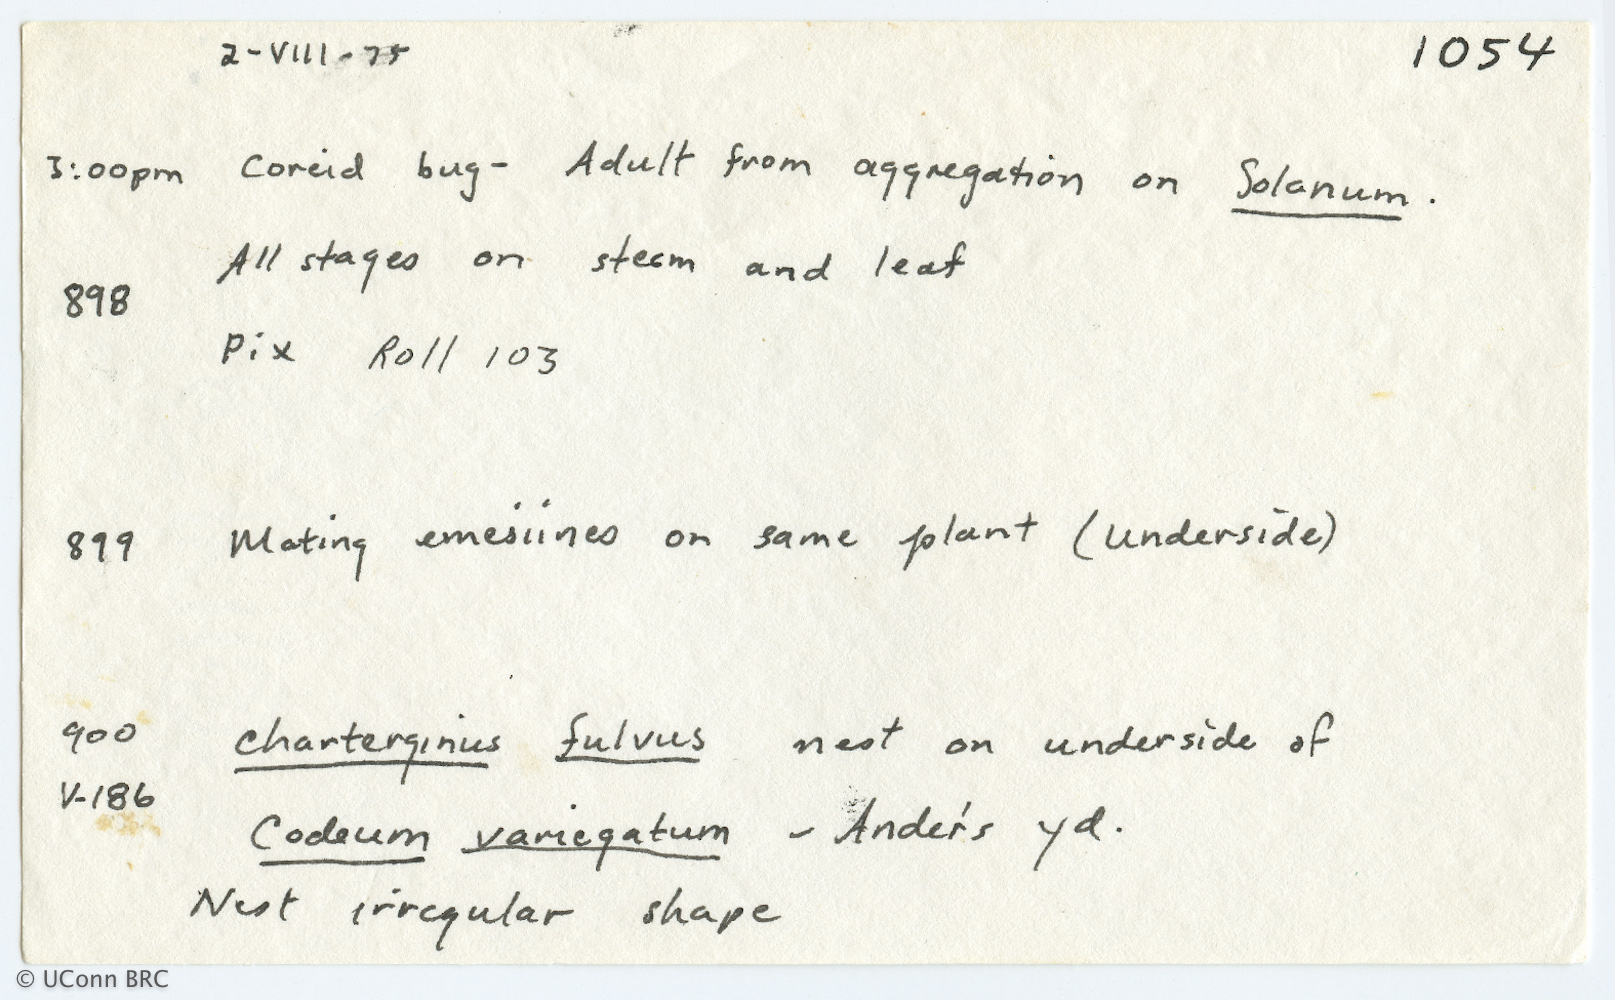 2-VIII-75
1054
3:00pm Coreid bug- Adult from aggregation on Solanum.
All stages on steem and leaf
898
Pix Roll 103
899 Mating emesiines on same plant (underside)
900 charterginus fulvus nest on underside of
V-186
Codeum variegatum - Ander's yd.
Nest irregular shape
© UConn BRC